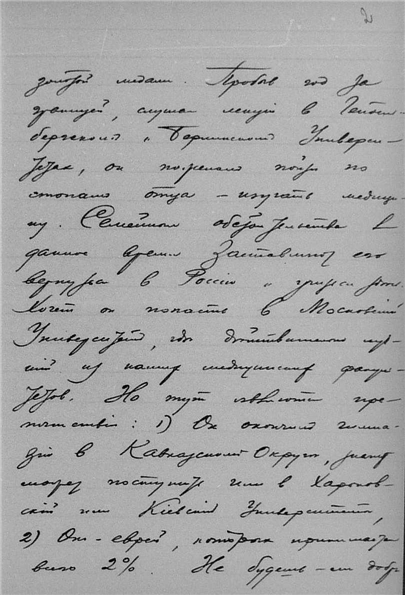 2
золотой медали. Пробыв год за
границей, слушая лекции в Гейдель-
бергском и Берлинском Университе-
тах, он пожелал пойти по
стопам отца – изучать медици-
ну. Семейныя обстоятельства в
данное время заставляют его
вернуться в Россию и
Хочет он попасть в Московский
Университет, где действительно луч-
ший из наших медицинских факуль-
тетов. Но тут являются пре-
пятствия: 1) Он окончил гимна-
зию в Кавказском Округе, значит
может поступить или в Харьков-
ский или Кіевский Университет,
2) Он – еврей, которых принимается
всего 2%. Не будешь – ли добр